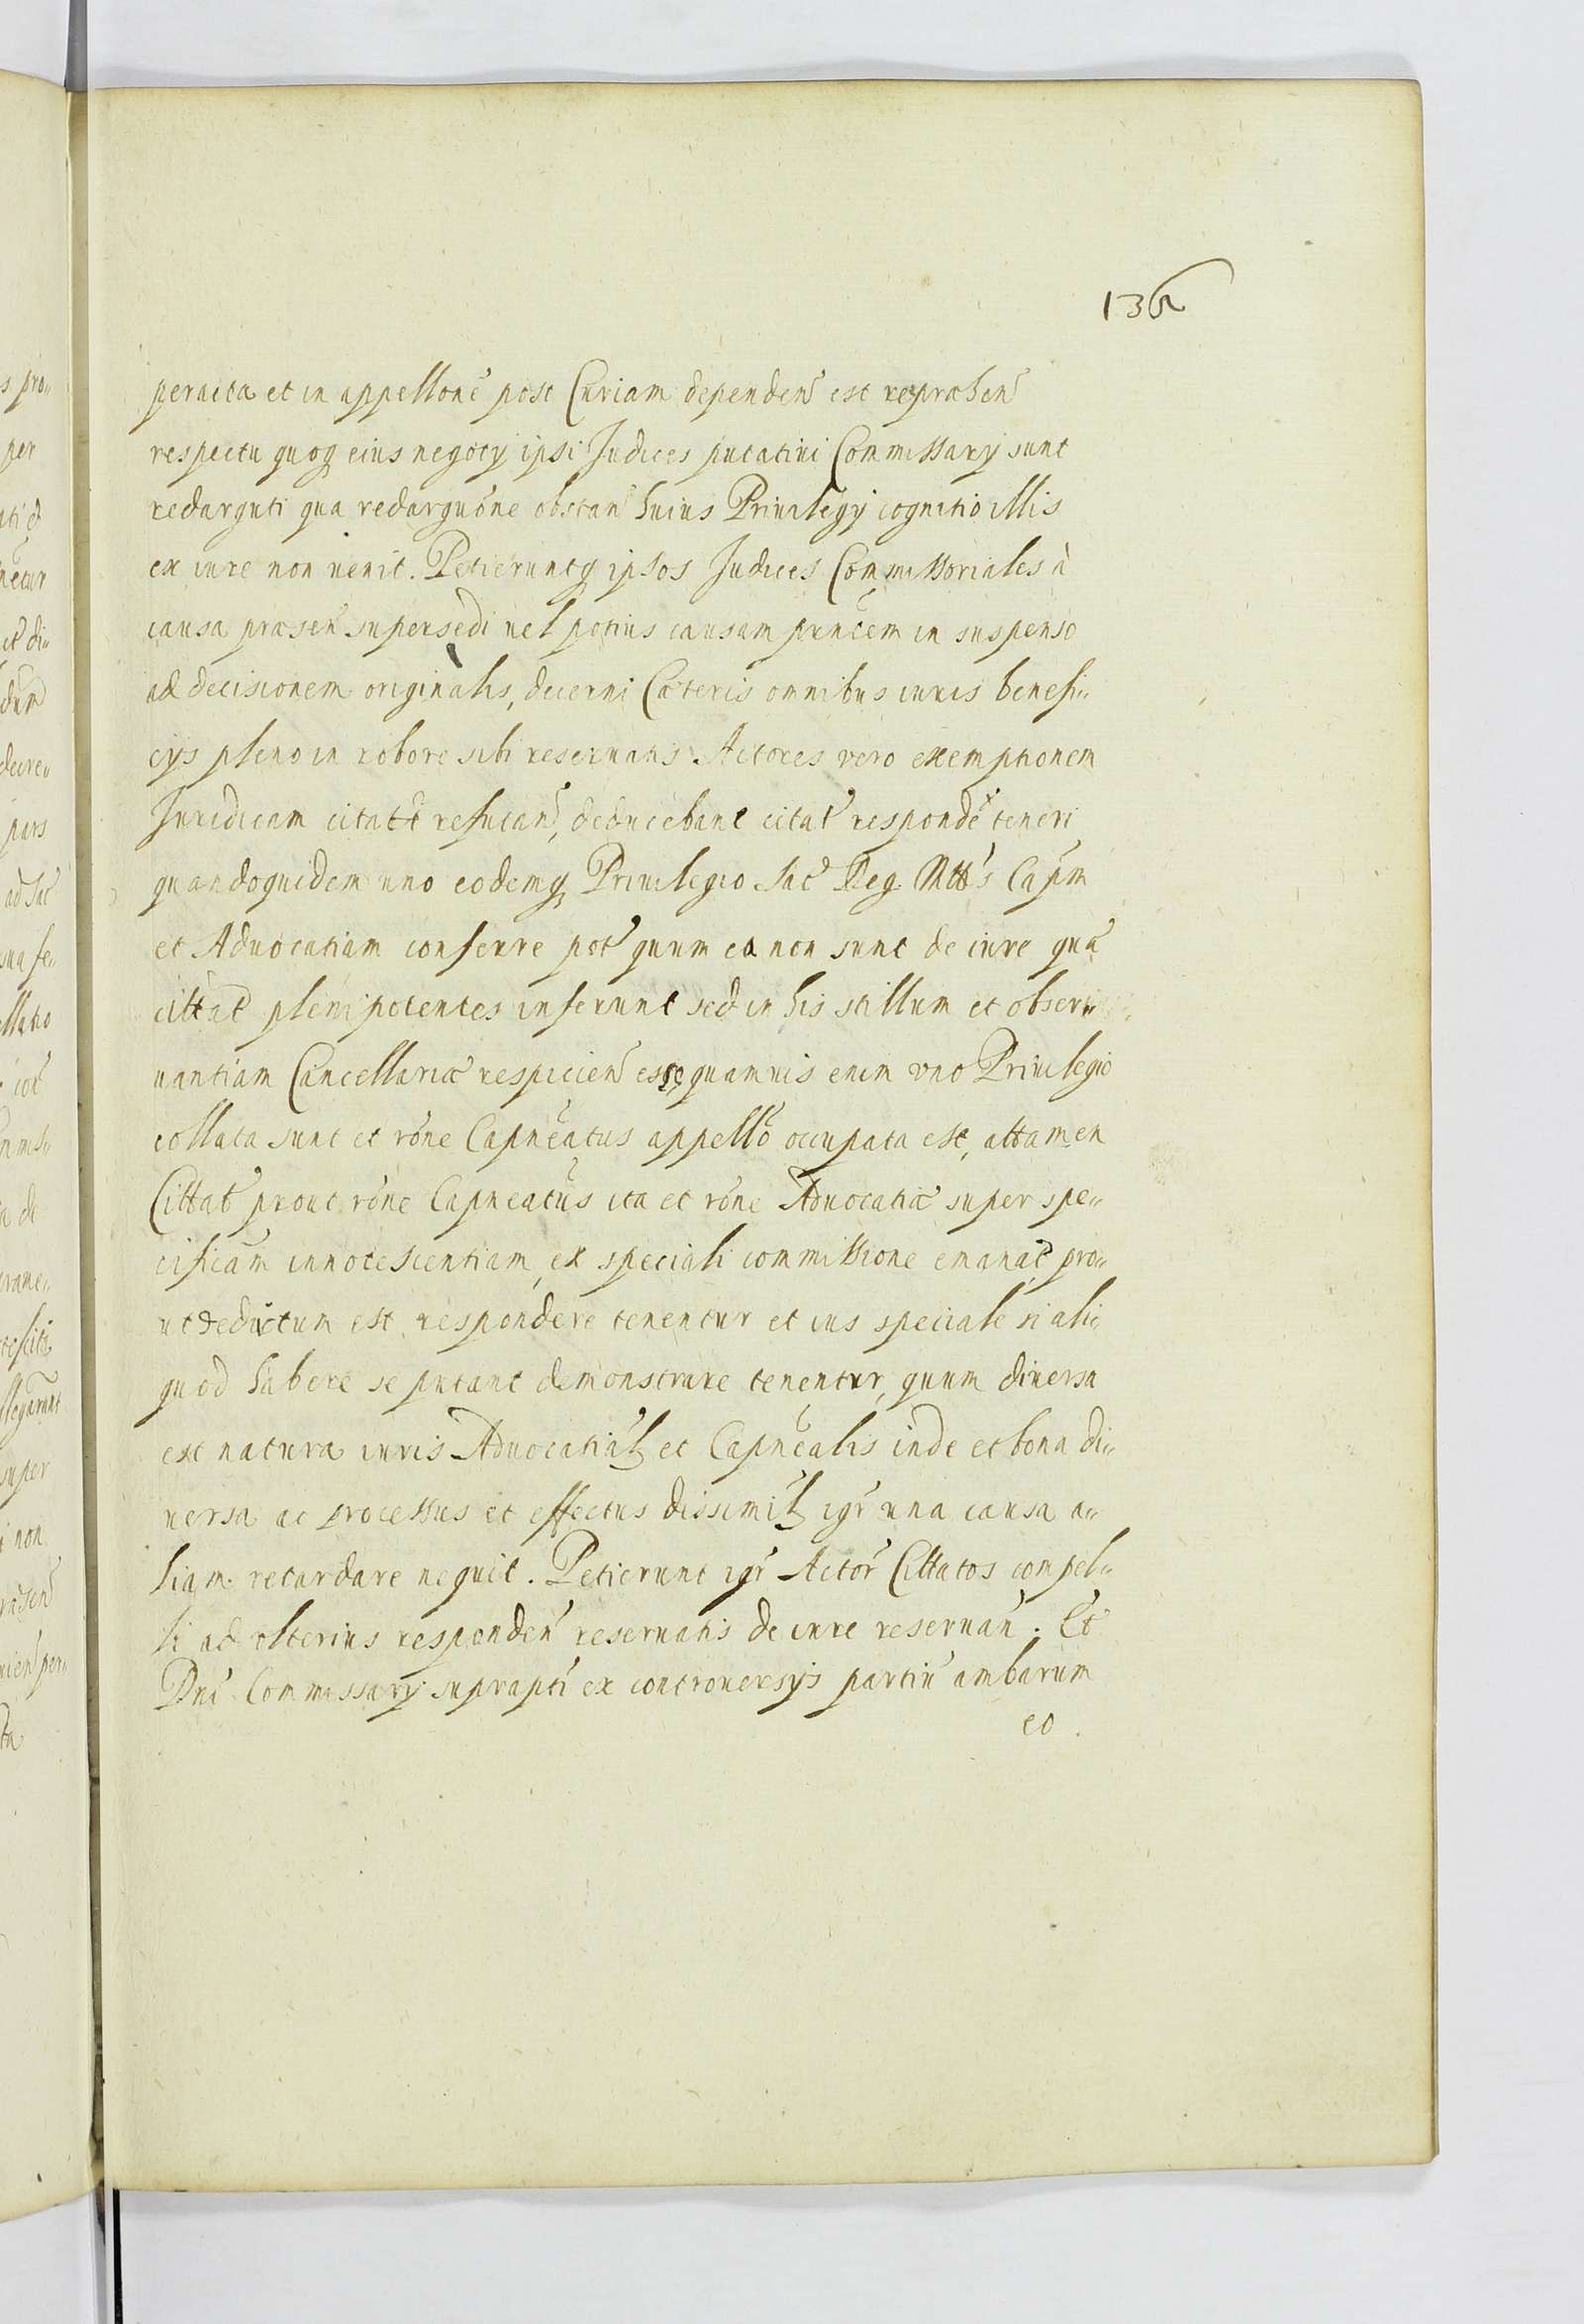 136
peracta et in appellone post Curiam dependen est reprahen
respectu quoq eius negoty ipsi Judices putatiui Commissary sunt
redarguti qua redarguone obstan huius Priuilegy cognitio illis
ex iure non uenit. Petieruntq ipsos Judices Commissoriales à
causa præsen supersedi uel potius causam pñtem in suspenso
ad decisionem originalis, decerni Cæteris omnibus iuris benefi„
cys pleno in robore sibi reseruatis Actores vero exemptionem
Juridicam citat refutan, deducebant citat responde teneri
quandoquidem uno eodemq Priuilegio Sac Reg. Mttis Capm
et Aduocatiam conferre pot quum ea non sunt de iure qua
cittat plenipotentes inferunt sed in his stillum et obser„
uantiam Cancellariæ respicien esse, quamuis enim vno Priuilegio
collata sunt et rone Capneatus appello occupata est, attamen
Cittat prout rone Capneatus ita et rone Aduocatiæ super spe„
cificam innotescentiam, ex speciali commissione emanat, pro„
ut deductum est respondere tenentur et ius speciale si ali„
quod habere se putant demonstrare tenentur, quum diuersa
est natura iuris Aduocatial et Capnealis inde et bona di„
uersa ac processus et effectus dissimil igr una causa a„
liam retardare nequit. Petierunt igr Actor Cittatos compel„
li ad vlterius responden reseruatis de iure reseruan. Et
Dni Commissary suprapti ex controuersys partiu ambarum
eo
s pro„
per
netur
et di„
decre„
pars
ad hac
sua fe„
ellatio
a de
super
i non